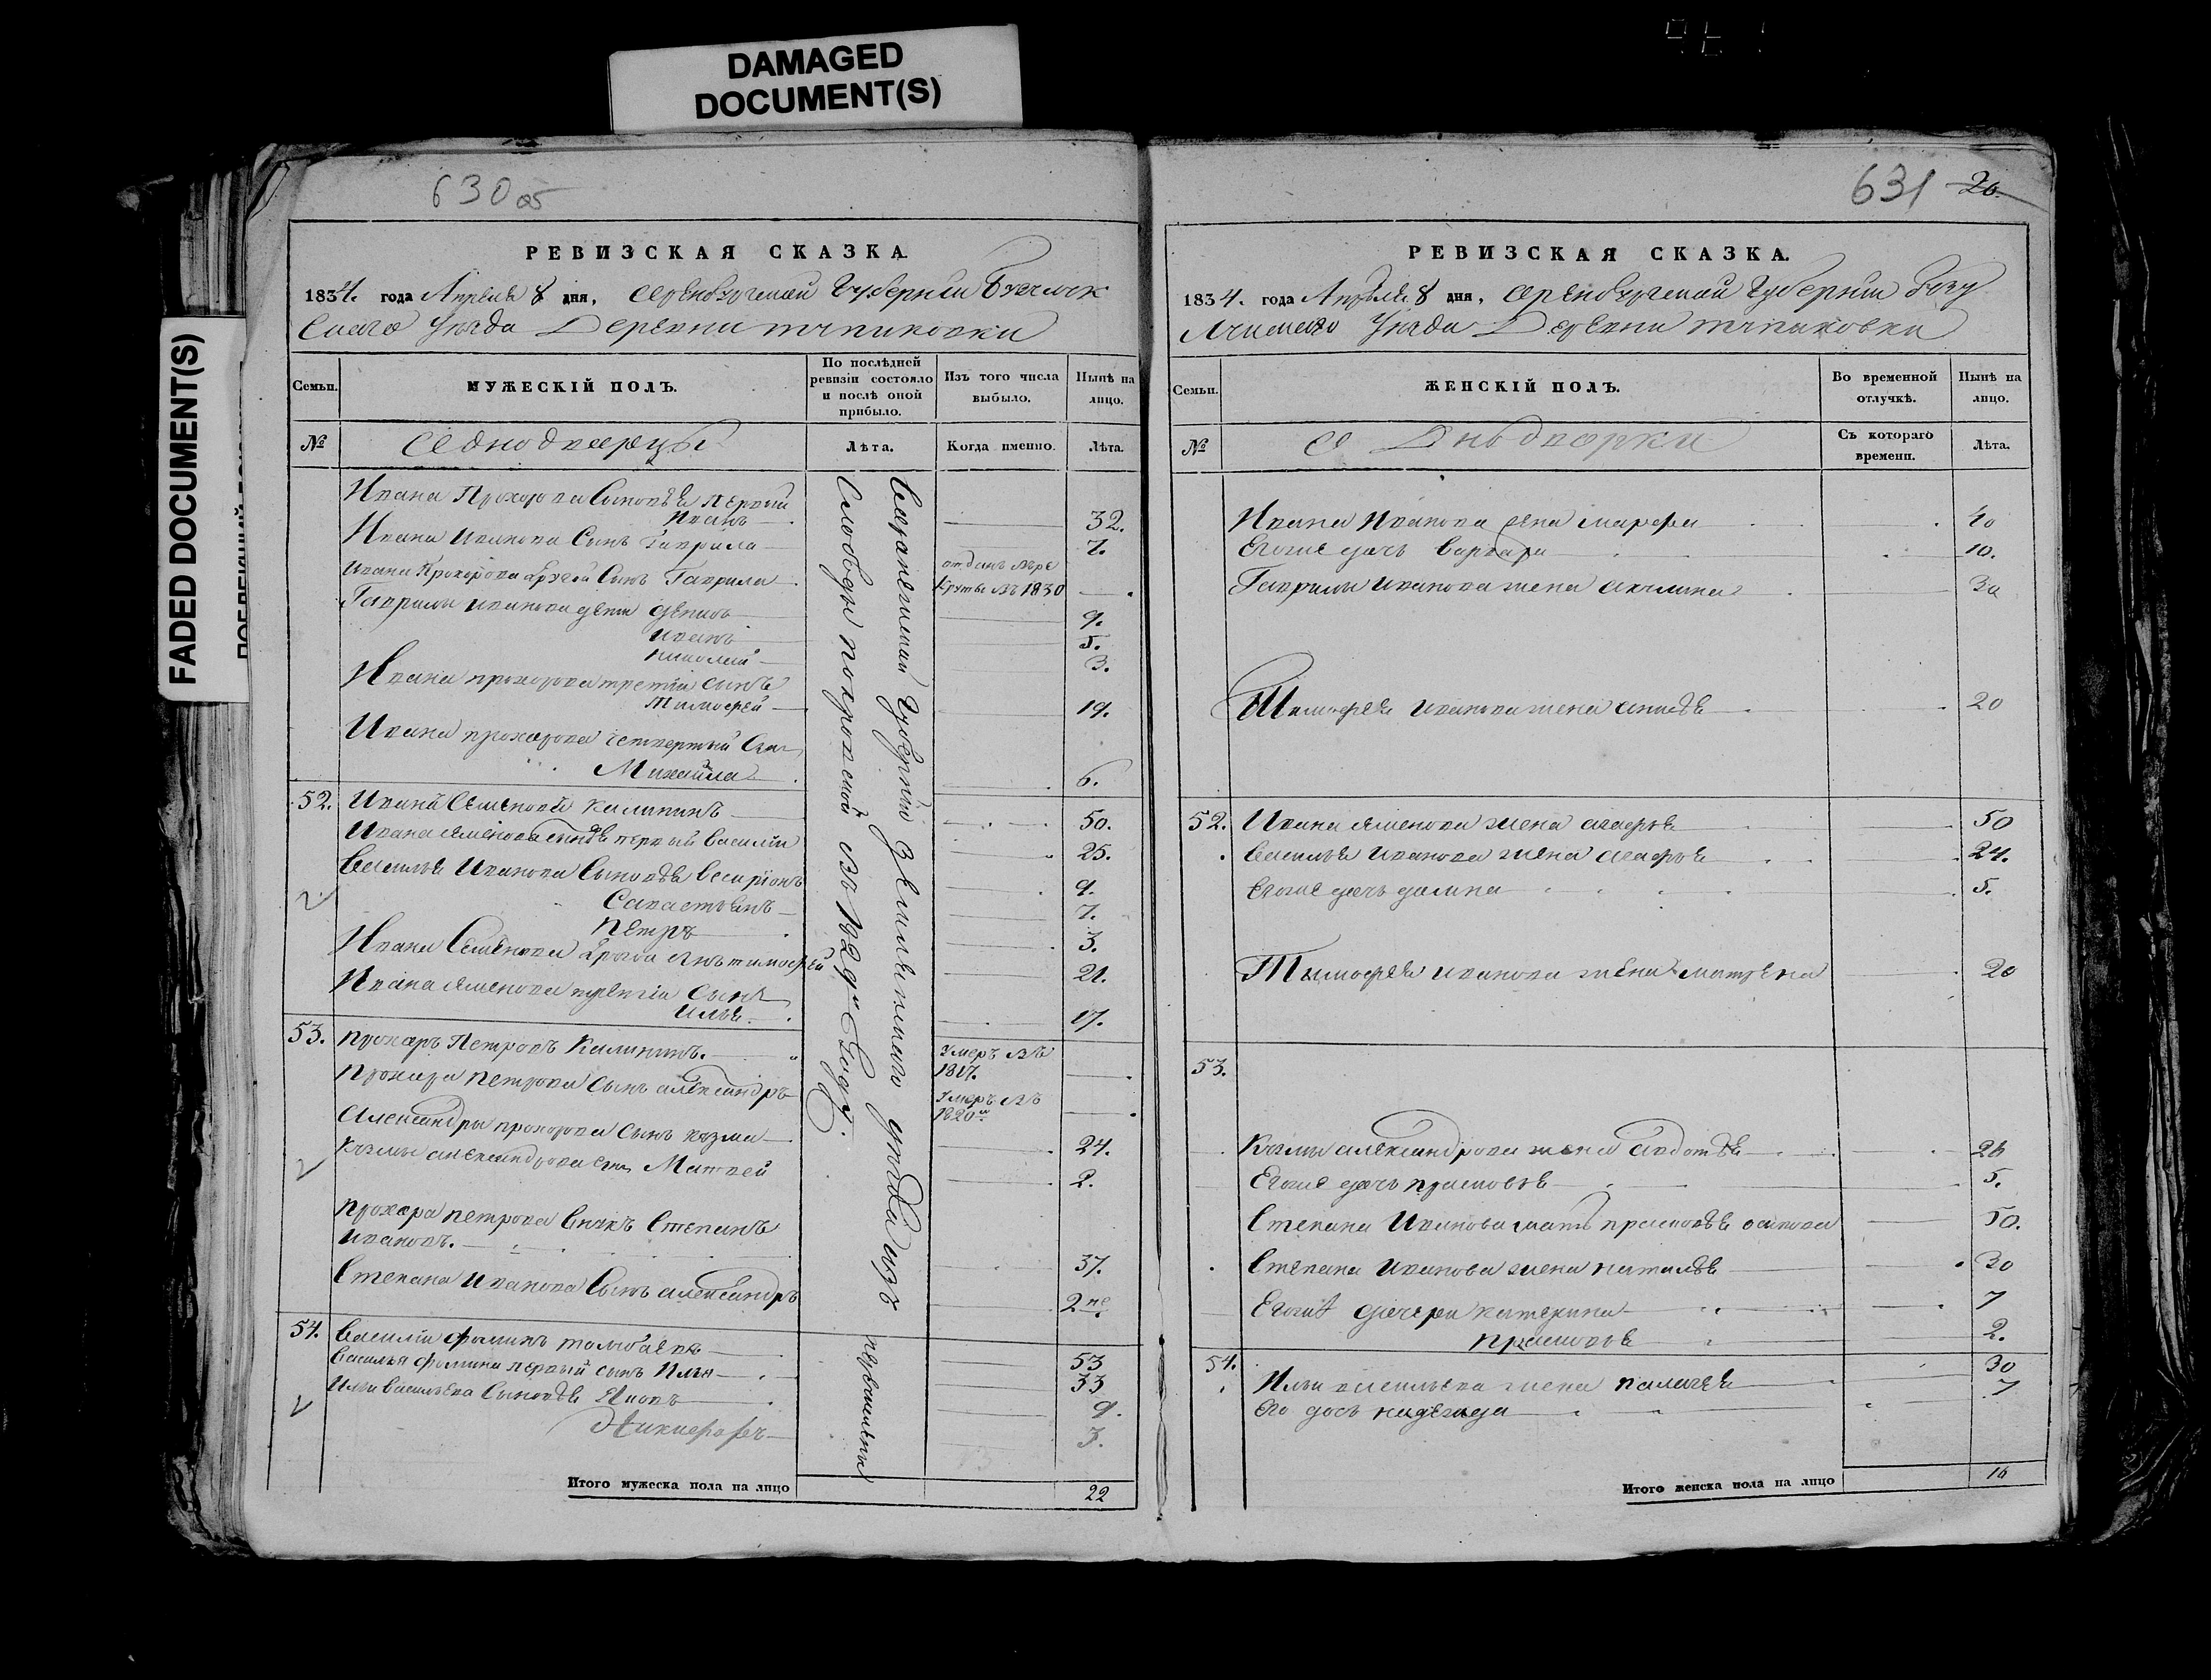 DAMAGED
DOCUMENT(S)
FADED DOCUMENT(S)
630 об
РЕВИЗСКАЯ СКАЗКА.
1834. года Апреля 8 дня, Оренбургской Губернии Бугульк
Скаго Уезда Деревни
Семьи.
МУЖЕСКІЙ ПОЛЪ.
По послѣдней
ревизіи состояло
и послѣ оной
прибыло.
Изъ того числа
выбыло.
Нынѣ на
лицо.
№
Однодворцы
Лѣта.
Когда именно.
Лѣта.
Ивана Прохорова Сыновья первый
Иванъ 32.
Ивана Иванова Сынъ Гаврила 7.
Ивана Прохорова другой Сынъ Гаврила
отданъ въ ре
круты въ 1830
Гаврилы Иванова дети Денисъ 9.
Иванъ 5.
Николай 3.
Ивана прохорова третий сынъ
Тимофей 19.
Ивана прохорова четвертый Сын
Михайла 6.
52. Иванъ Семеновъ Калининъ 50.
Ивана Семенова сыновья первый Василий 25.
Василья Иванова Сыновья 9.
Савастьянъ 7.
Петръ 3.
Ивана Семенова другой сынъ тимофей 21.
Ивана Семенова третий Сынъ
Илья 17.
53. Прохоръ Петровъ Калининъ.
Умеръ въ
1817.
Прохора Петрова Сынъ александръ
Умеръ въ
1820м
Александры прохорова Сынъ козма 24.
Козмы александрова сынъ Матвей 2.
Прохора петрова Внукъ Степанъ
Ивановъ. 37.
Степана Иванова Сынъ александръ 2 не
54. Василий Фоминъ 53
Василья Фомина первый сынъ Илья 33
Ильи Васильева Сыновья 9.
Никифоръ 3.
Воронежской Губернии Землянскаго уезда изъ
Слободы покровской въ 182 Году.
Итого мужеска пола на лицо 22
631 20
РЕВИЗСКАЯ СКАЗКА.
1834. года Апреля 8 дня, Оренбургской Губернии Бугу
Уезда Деревни
Семьи.
ЖЕНСКІЙ ПОЛЪ.
Во временной
отлучкѣ.
Нынѣ на
лицо.
№
Однодворки
Съ котораго
времени.
Лѣта.
Ивана Иванова жена марфа 40
Егоже дочь варвара 10.
Гаврилы Иванова жена акулина 30
Тимофея Иванова жена 20
52. Ивана Семенова жена агафья 50
Василья Иванова жена агафья 24.
Егоже дочь домна 5.
Тимофея иванова жена матрена 20
53.
Козмы александрова жена авдотья
Егоже дочь прасковья 5.
Степана Иванова мать прасковья осипова 50.
Степана Иванова жена наталья 30
Егоже дочери катерина 7
прасковья 2.
54. Ильи васильева жена пелагея 30
Его дочь надежда 7
Итого женска пола на лицо 16